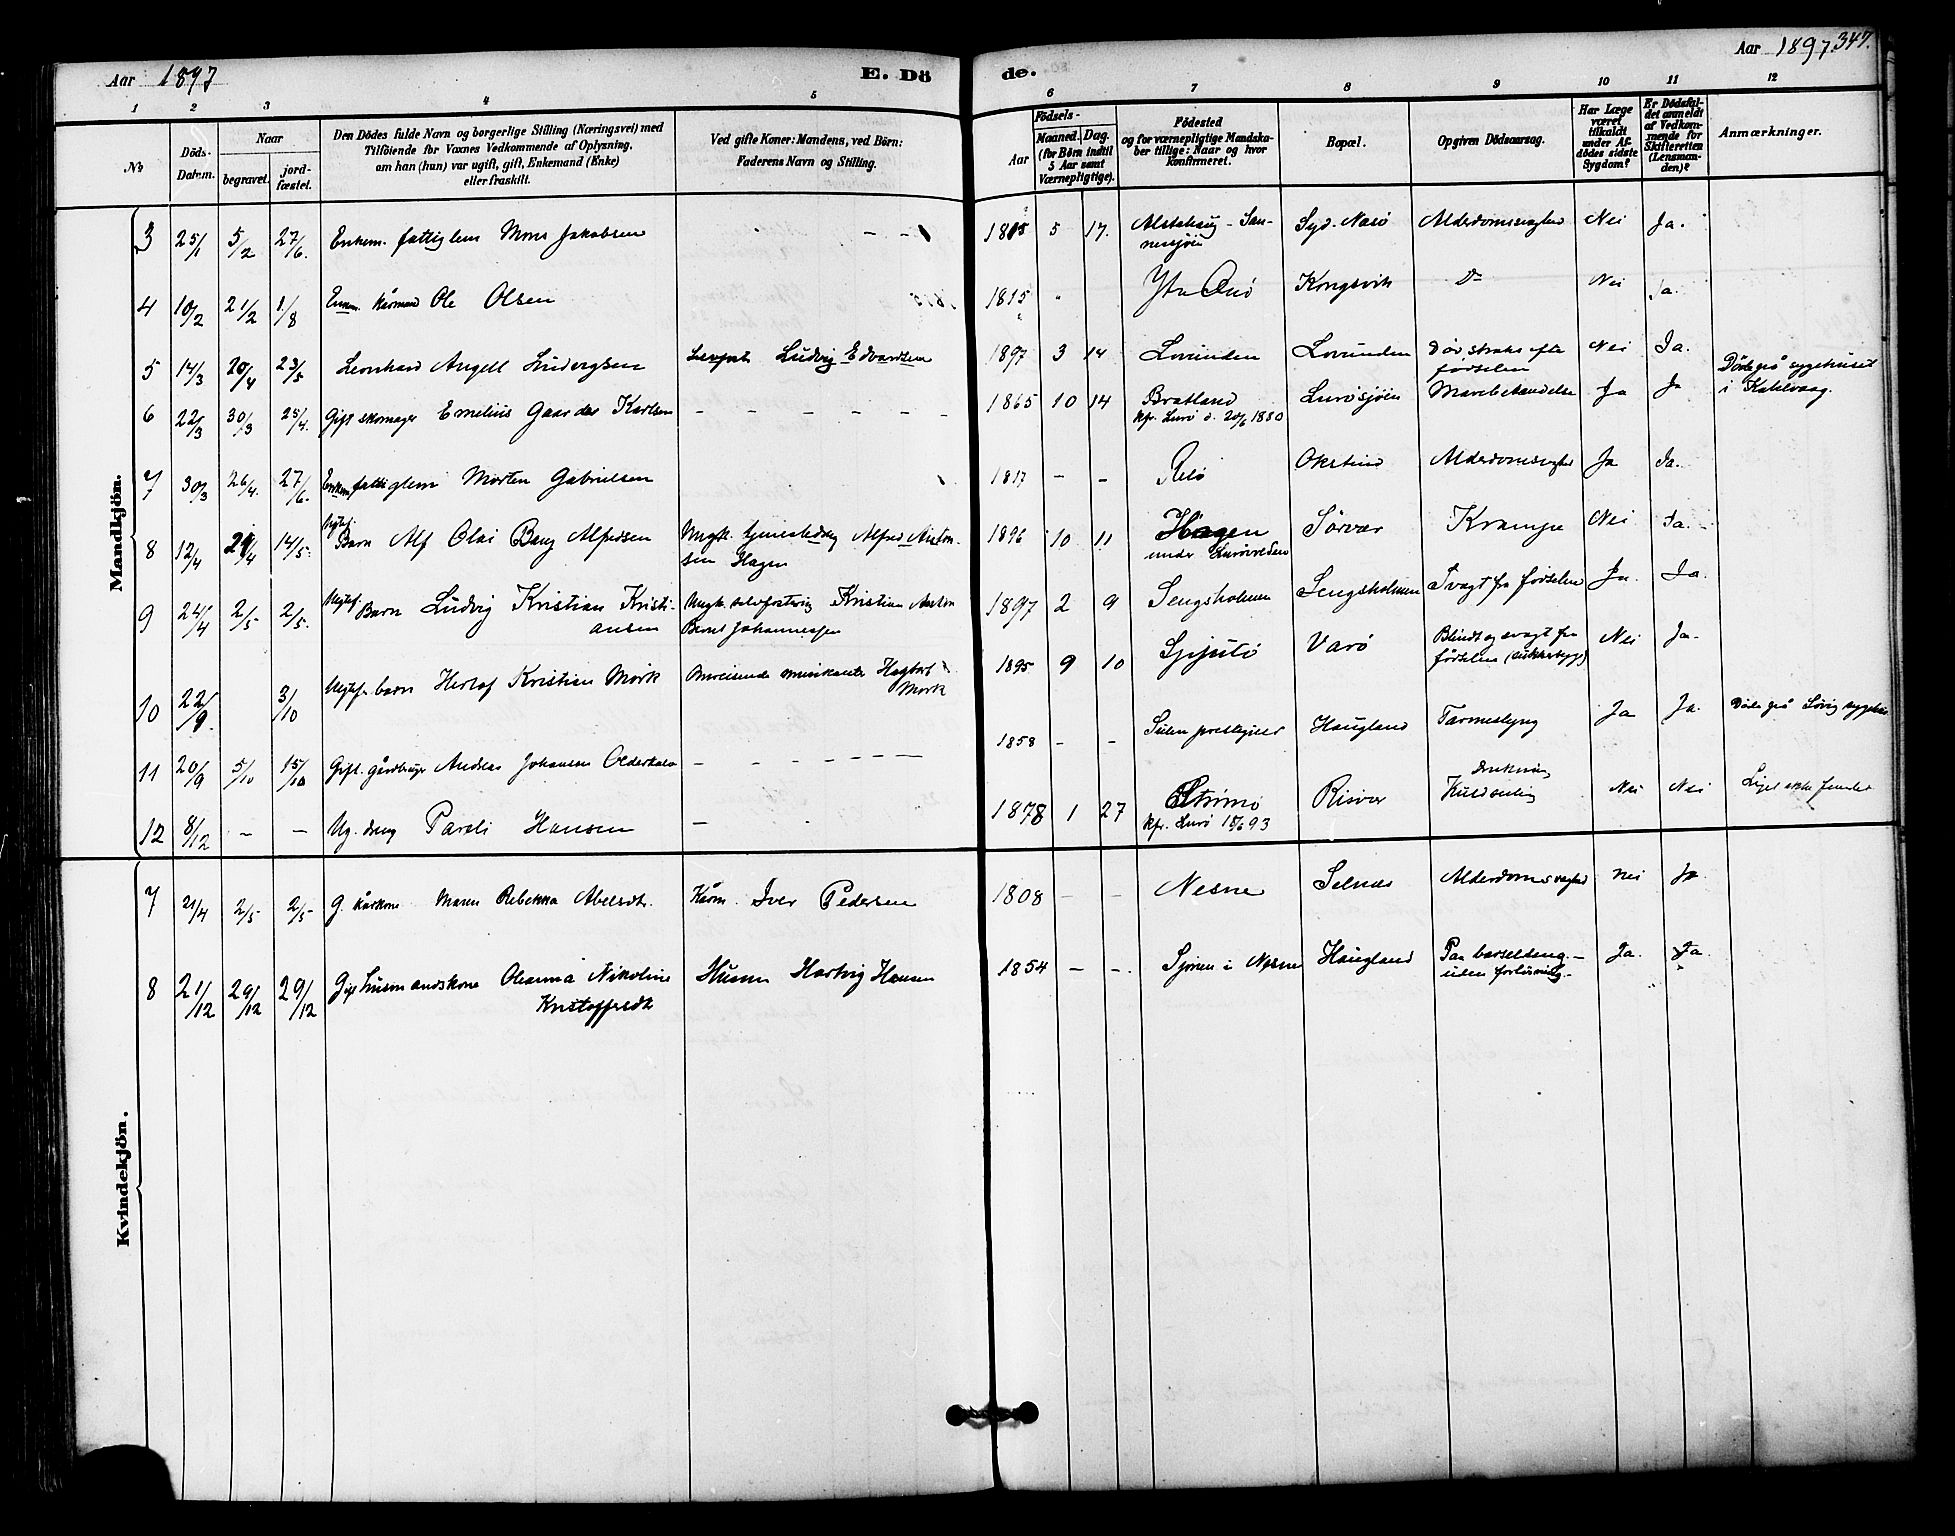 Aar 1897
E. Dö
de.
Aar 1897. 347.
1 2 3 4 5 6 7 8 9 10 11 12
No
Döds-
Datum.
Naar
begravet.
jord-
fæstet.
Den Dödes fulde Navn og borgerlige Stilling (Næringsvei) med
Tilföiende for Voxnes Vedkommende af Oplysning,
om han (hun) var ugift, gift, Enkemand (Enke)
eller fraskilt.
Ved gifte Koner: Mandens, ved Börn:
Faderens Navn og Stilling.
Födsels-
Aar
Maaned. Dag.
(for Börn indtil
5 Aar samt
Værnepligtige).
Födested
og for værnepligtige Mandska-
ber tillige: Naar og hvor
konfirmeret.
Bopæl.
Opgiven Dödsaarsag.
Har Læge
været
tilkaldt
under Af-
dödes sidste
Sygdom?
Er Dödsfal-
det anmeldt
af Vedkom-
mende for
Skifteretten
(Lensman-
den)?
Anmærkninger.
Mandkjön.
3 25/1 5/2 27/6. Enkem. fattiglem Mons Jakobsen – – 1815 5 17. Alstahaug - San-
nessjøen
Syd-Nasø Alderdomssvaghed Nei Ja.
4 10/2 21/2 1/8 Enkem. kårmand Ole Olsen 1815 " Kongsvik Do Nei Ja.
5 14/3 20/4 23/5 Leonhard Angell Ludvigsen Ludvig Edvardsen 1897 3 14 Lovunden Lovunden Død straks efter
fødselen
Nei Ja.
6 22/3 30/3 25/4. Gift skomager Emelius Gaarder Karlsen – – – – – – 1865 10 14 Bratland
kfr. Lurø d. 20/6 1880
Lurøsjøen Ja Ja Døde på sygehuset
i Kabelvaag.
7 30/3 26/4. 27/6. Enkem. fattiglem Morten Gabrielsen 1817 – – Relø Alderdomssvaghed Ja Ja.
8 12/4 14/5. Ægtef.
Barn Alf Olai Bang Alfredsen Ungk. Alfred Anton-
sen Hagen
1896 10 11 Hagen
under
Sørvær Krampe Nei Ja.
9 24/4 2/5 2/5. Ægtef. Barn Ludvig Kristian Kristi-
ansen
Ungk. Kristian Anton
Bernt Johannessen
1897 2 9 Sengsholmen Sengsholmen Svagt fra fødselen Ja. Ja.
10 22/9. 3/10 Ægtef. barn Herlof Kristian Mörk Omreisende musikanter
Mørk
1895 9 10 Varø Blindt og svagt fra
fødselen
Nei Ja.
11 20/9 5/10 15/10 Gift. gårdbruger Andreas Johansen – – – – – – – 1858 – – Haugland Ja Ja. Døde på Søvig sygehus
12 8/12 – – Ug. dreng Pareli Hansen – 1878 1 27 Strømø
kfr. Lurø 18/6 93
Risvær Drukning
Nei Nei Liget ikke fundet
Kvindekjön.
7 21/4 2/5 2/5 G. kårkone Maren Rebekka Abelsdtr. Kårm. Iver Pedersen 1808 – – Nesne Selnæs Alderdomssvaghed nei Ja.
8 21/12 29/12 29/12 Gift husmandskone Oleanna Nikoline
Kristoffersdtr
Husm Hartvig Hansen 1854 – –. Sjonen i Nesne Haugland Paa barselseng –
uden forløsning.
Ja. Ja.